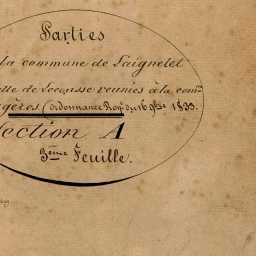 Parties
la commune de Saignelet
lle de Locousse reunies à la com.ne
gères (ordonnance Roy. du 16 9bre 1833.
Section A
3ème Feuille.